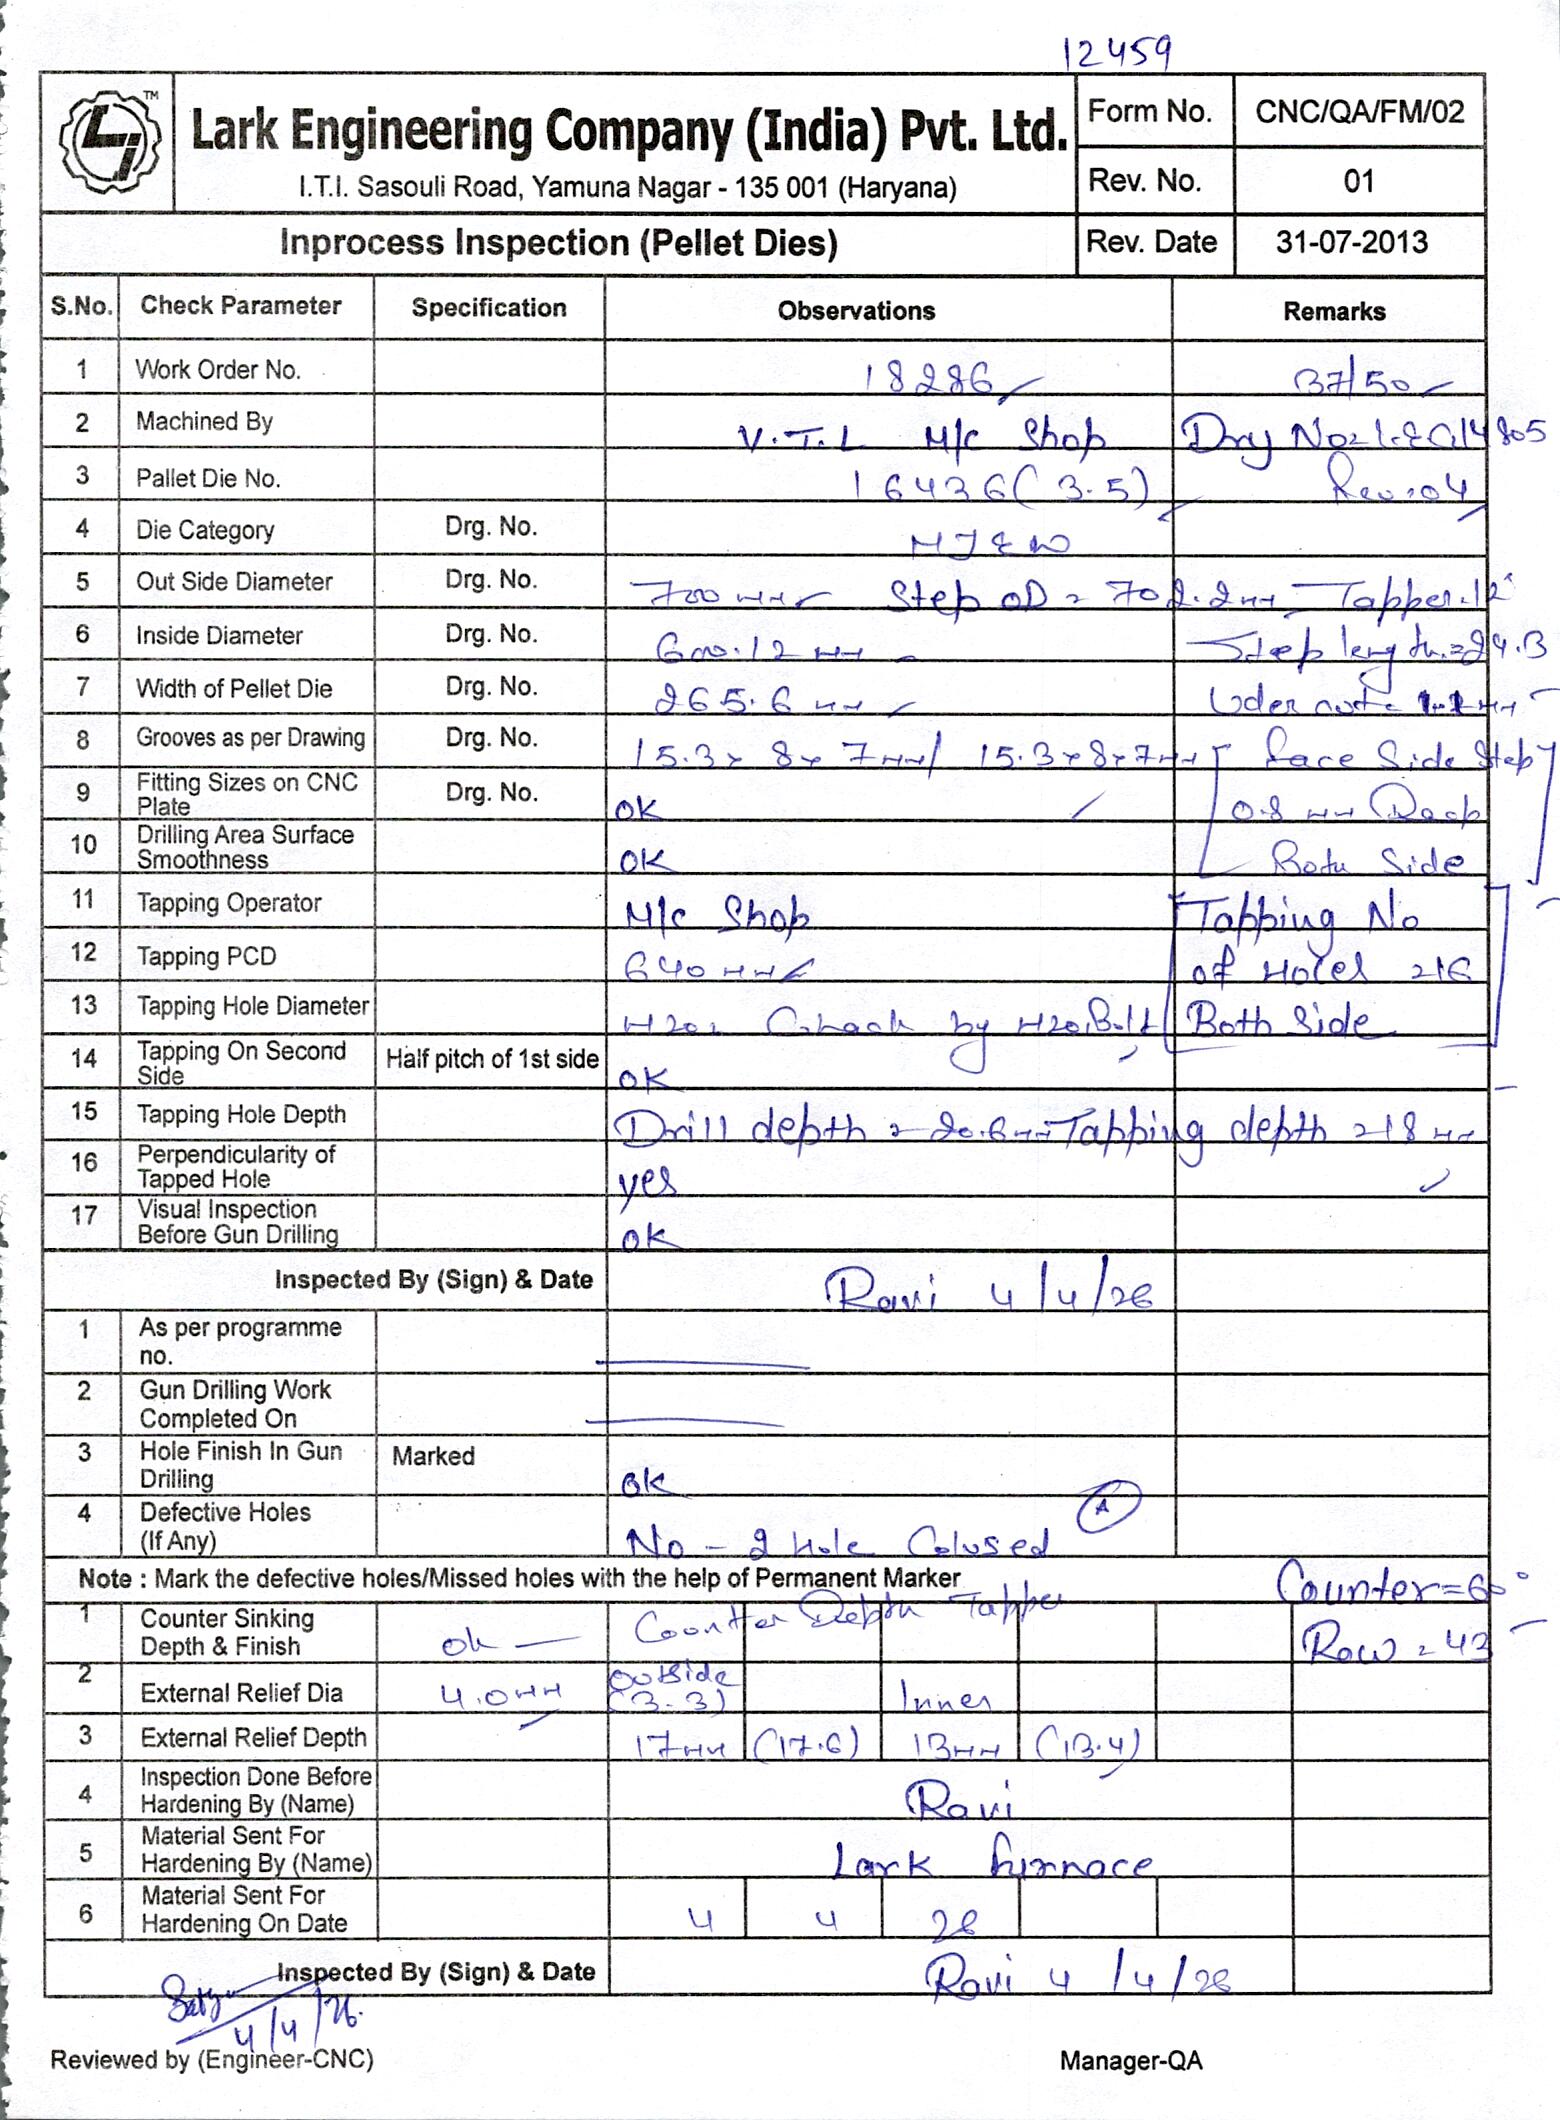 12459
TM
Lark Engineering Company (India) Pvt. Ltd.
I.T.I. Sasouli Road, Yamuna Nagar - 135 001 (Haryana)
Form No. CNC/QA/FM/02
Rev. No. 01
Inprocess Inspection (Pellet Dies) Rev. Date 31-07-2013
S.No. Check Parameter Specification Observations Remarks
1 Work Order No. 18286 37/50
2 Machined By V.T.L M/c Shop
3 Pallet Die No. 16436 (3.5) Rev:04
4 Die Category Drg. No.
5 Out Side Diameter Drg. No. 700 Step OD = 702.2 Tapper 12°
6 Inside Diameter Drg. No. 600.12 Step length = 24.3
7 Width of Pellet Die Drg. No. 265.6
8 Grooves as per Drawing Drg. No. 15.3x 8x 7 / 15.3x8x7 face Side Step
9 Fitting Sizes on CNC Plate Drg. No. ok 0.8 Deep
10 Drilling Area Surface Smoothness ok Both Side
11 Tapping Operator M/c Shop Tapping No
12 Tapping PCD 640 of Holes =16
13 Tapping Hole Diameter M20 Check by M20 Bolt Both Side
14 Tapping On Second Side Half pitch of 1st side ok
15 Tapping Hole Depth Drill depth = 20.6 Tapping depth =18
16 Perpendicularity of Tapped Hole yes
17 Visual Inspection Before Gun Drilling ok
Inspected By (Sign) & Date Ravi 4/4/26
1 As per programme no.
2 Gun Drilling Work Completed On
3 Hole Finish In Gun Drilling Marked ok
4 Defective Holes (If Any) No - 2 Hole Colused A
Note : Mark the defective holes/Missed holes with the help of Permanent Marker Counter=60°
1 Counter Sinking Depth & Finish ok Counter Depth Tapper Row = 43
2 External Relief Dia 4.0 Outside (3.3) Inner
3 External Relief Depth 17 (17.6) 13 (13.4)
4 Inspection Done Before Hardening By (Name) Ravi
5 Material Sent For Hardening By (Name) Lark furnace
6 Material Sent For Hardening On Date 4 4 26
Inspected By (Sign) & Date Ravi 4/4/26
4/4/26.
Reviewed by (Engineer-CNC) Manager-QA